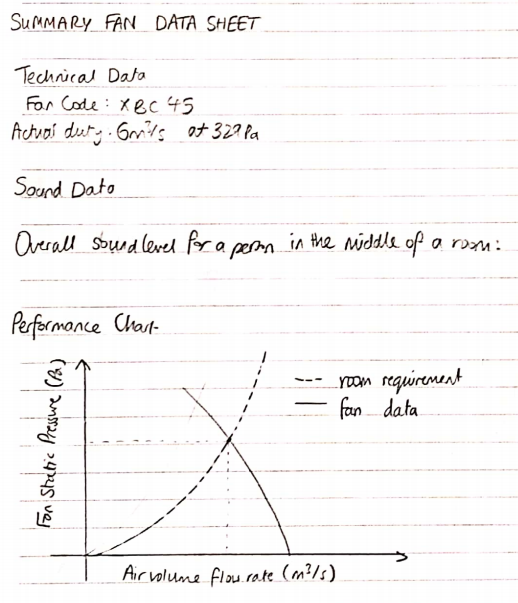 SUMMARY FAN DATA SHEET
Technical Data
Fan Code: XBC 45
Actual duty. 6m³/s at 329Pa
Sound Data
Overall sound level for a person in the middle of a room:
Performance Chart
Fan Static Pressure (Pa)
--- room requirement
— fan data
Air volume flow rate (m³/s)